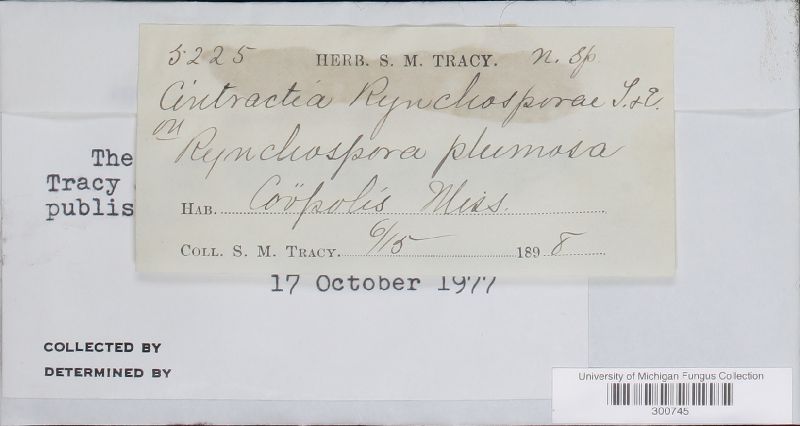 5225 HERB. S. M. TRACY. n. sp.
Cintractia Rynchosporae T. & E.
on
Rynchospora plumosa
HAB. Coöpolis Miss.
COLL. S. M. TRACY. 6/15 1898
The
Tracy
publis
17 October 1977
COLLECTED BY
DETERMINED BY
University of Michigan Fungus Collection
300745